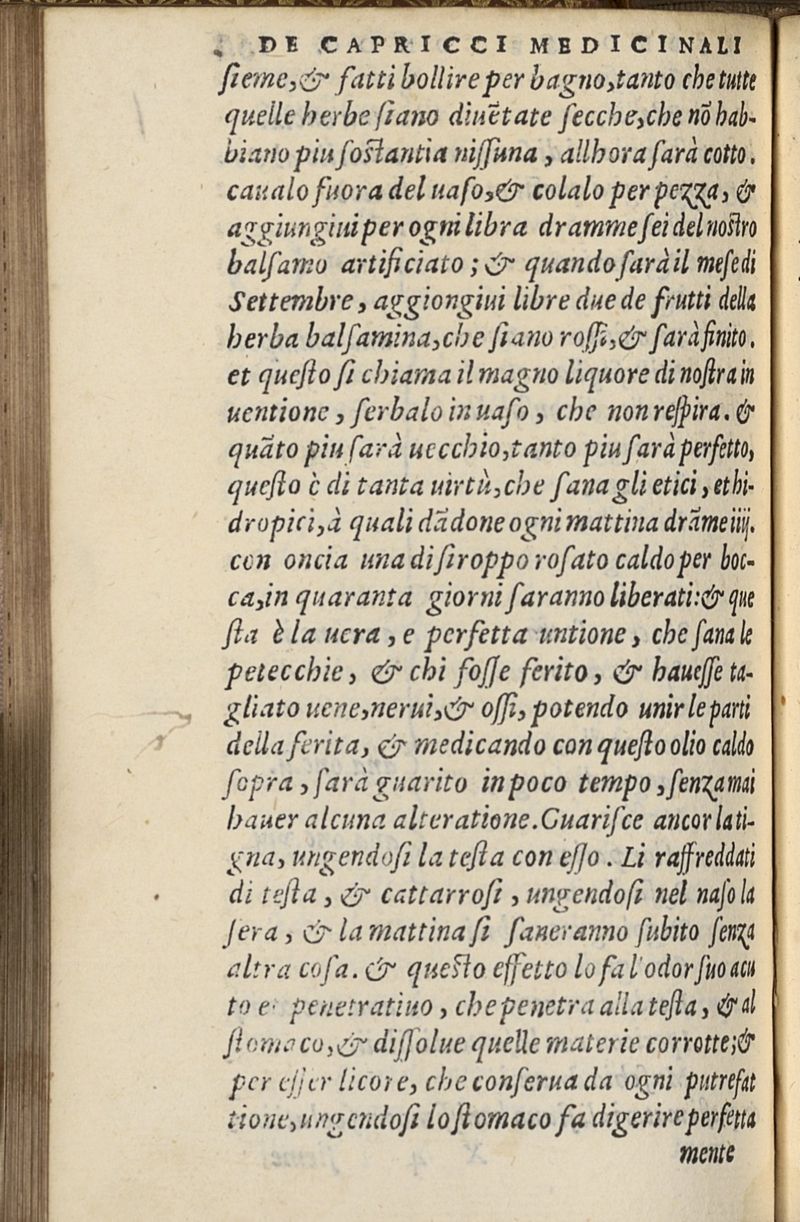 DE CAPRICCI MEDICINALI
ſieme, & fatti bollire per bagno, tanto che tutte
quelle herbe ſiano diuētate ſecche, che nō hab-
biano piu ſoſtantia niſſuna, allhora ſarà cotto.
caualo fuora del uaſo, & colalo per pezza, &
aggiungiui per ogni libra dramme ſei del noſtro
balſamo artificiato; & quando ſarà il meſe di
Settembre, aggiongiui libre due de frutti della
herba balſamina, che ſiano roſſi, & ſarà finito.
et queſto ſi chiama il magno liquore di noſtra in
uentione, ſerbalo in uaſo, che non reſpira. &
quāto piu ſarà uecchio, tanto piu ſarà perfetto,
queſto è di tanta uirtù, che ſana gli etici, et hi-
dropici, à quali dādone ogni mattina drāme iiij.
con oncia una di ſiroppo roſato caldo per boc-
ca, in quaranta giorni ſaranno liberati: & que
ſta è la uera, e perfetta untione, che ſana le
petecchie, & chi foſſe ferito, & haueſſe ta-
gliato uene, nerui, & oſſi, potendo unir le parti
della ferita, & medicando con queſto olio caldo
ſopra, ſarà guarito in poco tempo, ſenza mai
hauer alcuna alteratione. Guariſce ancor la ti-
gna, ungendoſi la teſta con eſſo. Li raffreddati
di teſta, & cattarroſi, ungendoſi nel naſo la
ſera, & la mattina ſi ſaneranno ſubito ſenza
altra coſa. & queſto effetto lo fa l'odor ſuo acu
to e penetratiuo, che penetra alla teſta, & al
ſtomaco, & diſſolue quelle materie corrotte; &
per eſſer licore, che conſerua da ogni putrefat
tione, ungendoſi lo ſtomaco fa digerire perfetta
mente